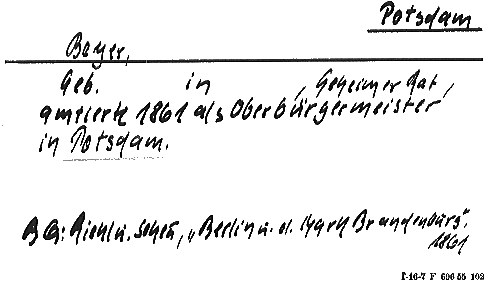 Potsdam
Beyer,
Geb. in , Geheimer Rat,
amtierte 1861 als Oberbürgermeister
in Potsdam.
BG: Riehl u. Scheu, „Berlin u. d. Mark Brandenburg".
1861
I-16-7 F 696 55 102